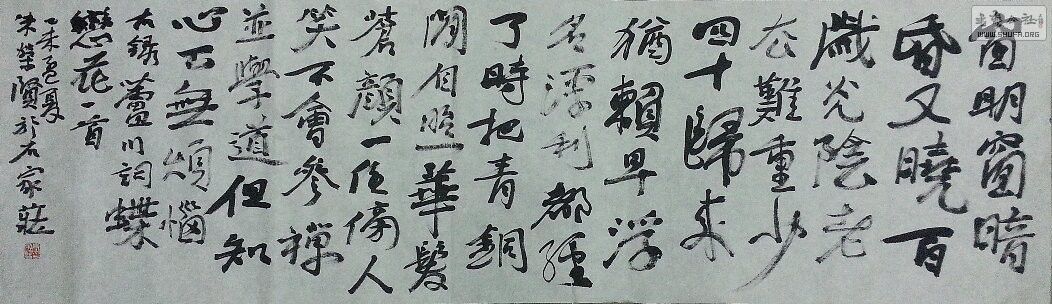 窗明窗暗
昏又曉百
歲光陰老
去難重少
四十歸來
猶賴早浮
名浮利都經
了時把青銅
閒自照華髮
蒼顏一任傍人
笑不會參禪
並學道但知
心下無煩惱
右錄蘆川詞蝶
戀花一首
乙未夏
朱榮賢於石家莊
WWW.SHUFA.ORG